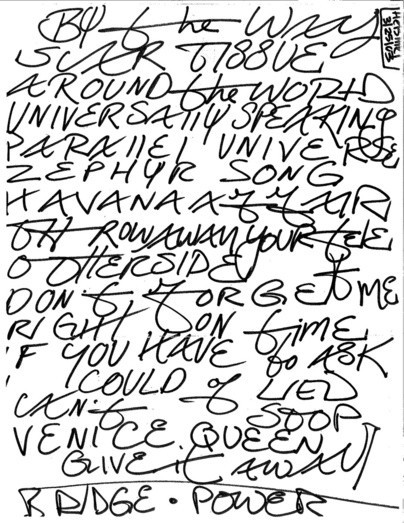 BY the WAY
SCAR TISSUE
AROUND the WORLD
UNIVERSAllY SPEAKING
PARAllEl UNIVERSE
ZEPHYR SONG
HAVANA AffAIR
THROW AWAY YOUR tELE
OTHERSIDE
DON't fORGEt ME
RIGHT ON tiME
IF YOU HAVE to ASK
I COULD of LIED
CAN't STOP
VENICE QUEEN
GIVE it AWAY
BRIDGE · POWER
3/25/03